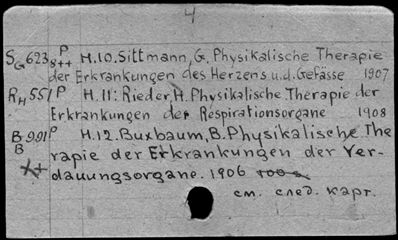 4
S_G 623 P 8++ H.10. Sittmann, G. Physikalische Therapie
der Erkrankungen des Herzens u.d. Gefässe 1907
R_H 551 P H.11: Rieder, H. Physikalische Therapie der
Erkrankungen der Respirationsorgane 1908
B_B 991 P H.12. Buxbaum, B. Physikalische The
rapie der Erkrankungen der Ver-
dauungsorgane. 1906
см. след. карт.